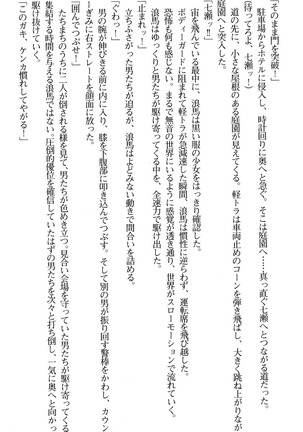 「そのまま門を突破！」
駐車場からホテルに侵入し、時計回りに奥へ急ぐ。そこは庭園へ……真っ直ぐ七瀬へとつながる道だった。
（待ってろよ、七瀬っ‼）
道の先に、小さな屋根のある庭園が見えてくる。軽トラは車両止めのコーンを弾き飛ばし、大きく跳ね上がりながら
庭園へと突入した。
「七瀬ーっ‼」
宙を飛んでいる最中に、浪馬は黒い服の少女をはっきり確認した。
ボディーガードに阻まれて軽トラが急減速した瞬間、浪馬は慣性に逆らわず、運転席を飛び越した。
恐怖も何も感じない。まるで無音の世界にいるように感覚が透き通り、世界がスローモーションで流れていく。
浪馬はゆっくりと男たちが駆け寄ってくる中を、全速力で駆け出した。
「止まれッ！」
立ちふさがった男たちが迫るが、浪馬はよどみない動きで間合いを詰める。
「ぐわっ！」
男の腕が伸びきる前に内に入り、膝を下腹部に叩き込んでつぶす。そして別の男が振りかぶる警棒をかわし、カウン
ターぎみに右ストレートを顔面に放った。
「囲んでつぶせ！」
たちまちのうちに二人が倒される様を見て、男たちが色めき立つ。見合い会場を守っていた男たちが駆け寄ってくる
集結する時間を与える浪馬ではない。圧倒的優位を確信していたはずの男たちを次々と打ち倒し、一気に奥へと向かっ
て駆け抜けていく。
「このガキ、ケンカ慣れしてやがる！」